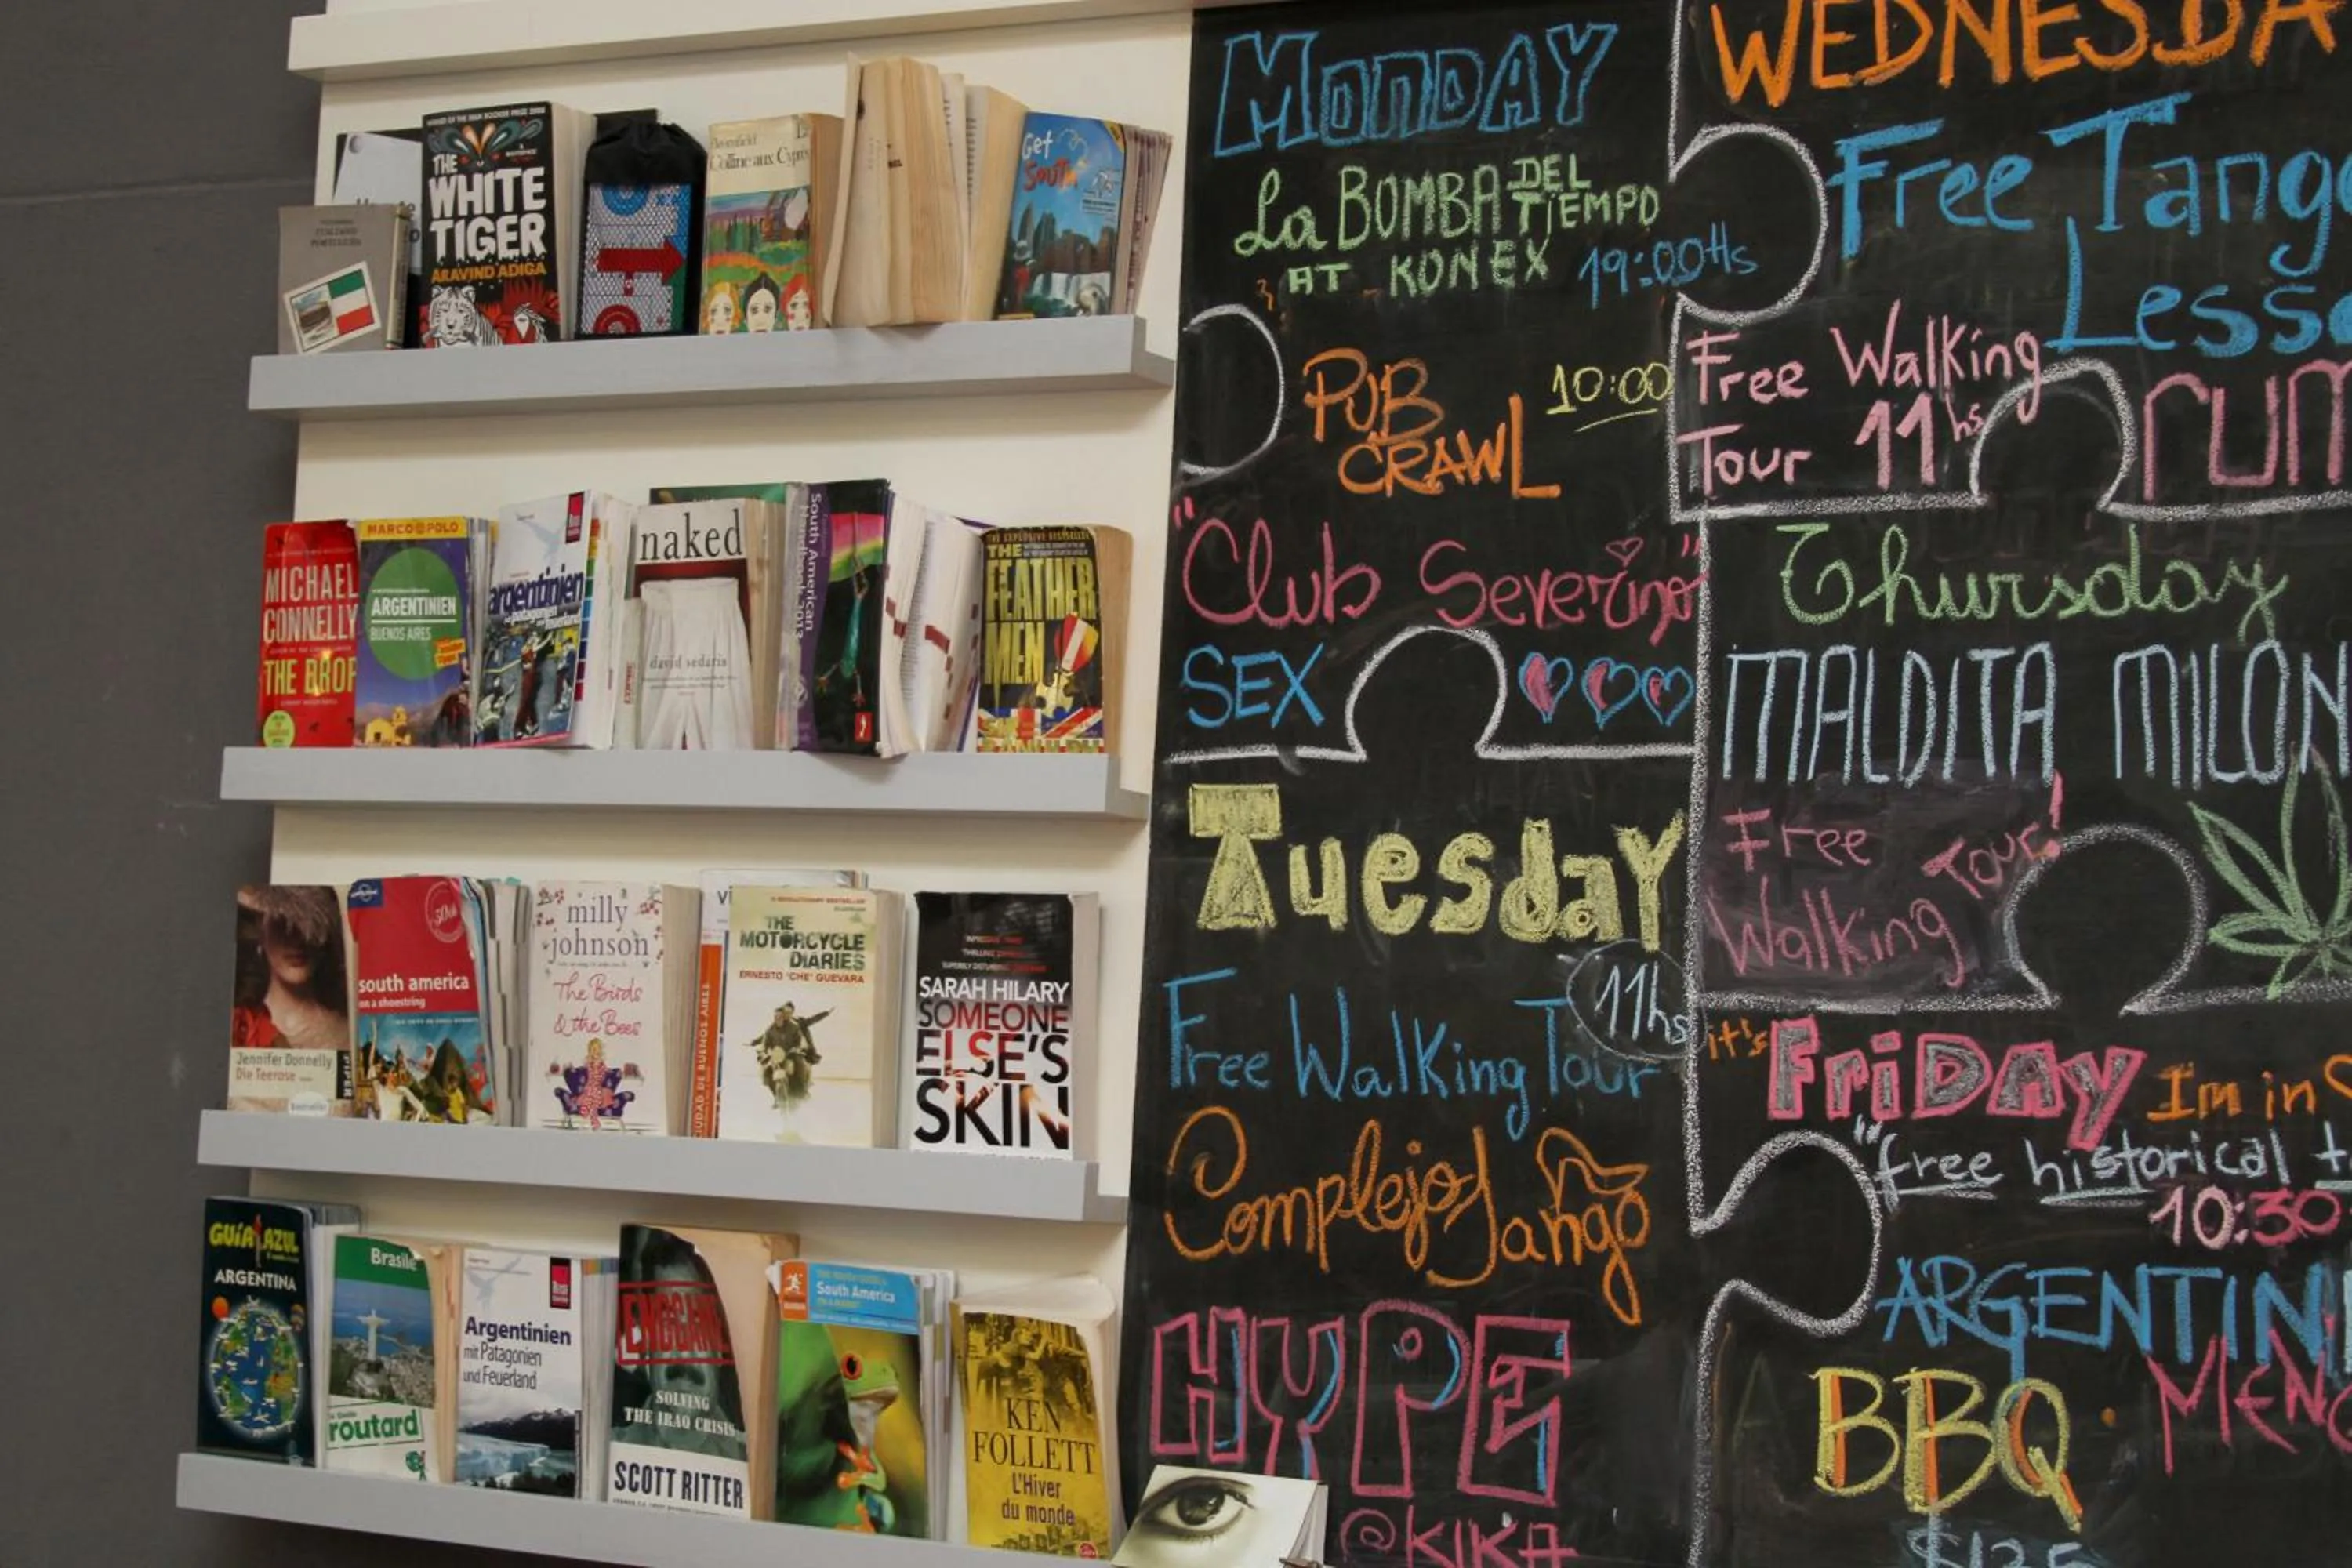 WINNER OF THE MAN BOOKER PRIZE 2008
THE
WHITE
TIGER
ARAVIND ADIGA
Colline aux Cyprès
Get
South
MICHAEL
CONNELLY
THE DROP
MARCO POLO
ARGENTINIEN
BUENOS AIRES
argentinien
patagonien
feuerland
naked
david sedaris
South American
Handbook 2013
THE
FEATHER
MEN
Jennifer Donnelly
Die Teerose
PIPER
south america
on a shoestring
milly
johnson
The Birds
& the Bees
CIUDAD DE BUENOS AIRES
THE
MOTORCYCLE
DIARIES
ERNESTO 'CHE' GUEVARA
SARAH HILARY
SOMEONE
ELSE'S
SKIN
GUÍA AZUL
ARGENTINA
Brasile
routard
Argentinien
mit Patagonien
und Feuerland
ENDGAME
SOLVING
THE IRAQ CRISIS
SCOTT RITTER
South America
KEN
FOLLETT
L'Hiver
du monde
MONDAY
La BOMBA DEL
TIEMPO
AT KONEX 19:00Hs
PUB
CRAWL
10:00
"Club Severino"
SEX
Tuesday
11hs
Free Walking Tour
Complejo Tango
HYPE
@KIKA
WEDNESDA
Free Tango
Lesso
Free Walking
Tour 11hs
Thursday
MALDITA MILON
Free
Walking
Tour!
it's FRiDAY Im in
"free historical t
10:30
ARGENTIN
BBQ
$125